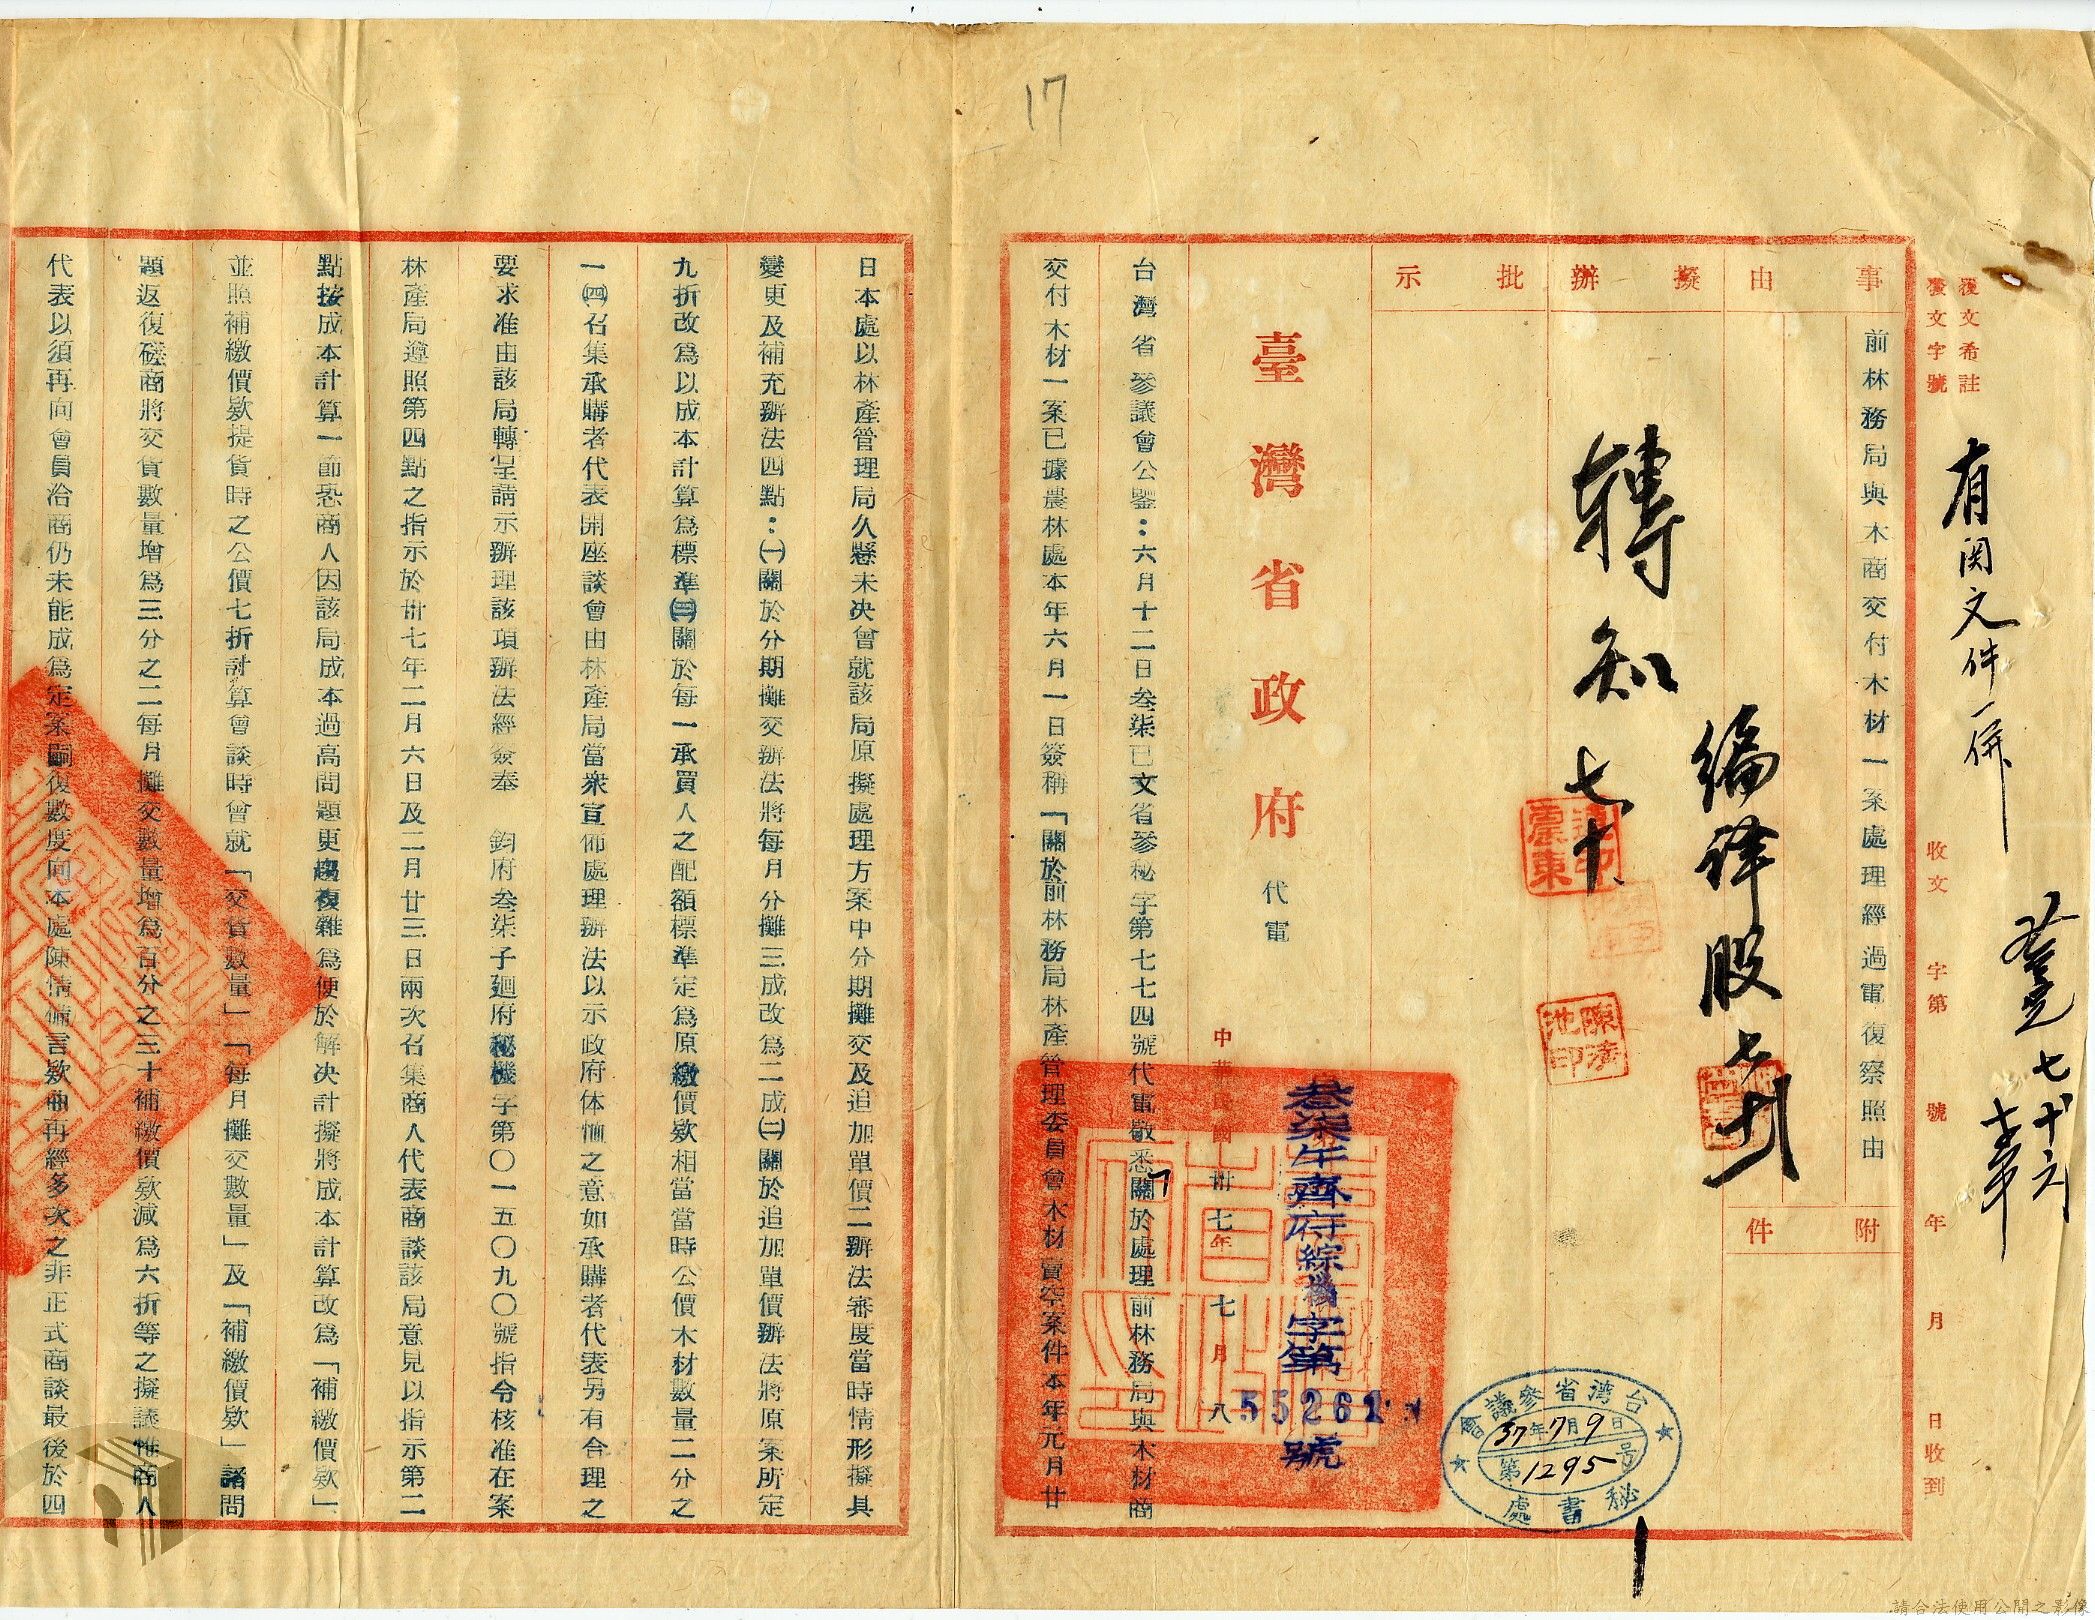 17
覆文希註
發文字號
有関文件一併
收文 字第 號 年 月 日收到
七十六
事由
擬辦
批示
前林務局與木商交付木材一案處理經過電復察照由
附件
編譯股
轉知
七十
陳濟池印
臺灣省政府
代電
中華民國卅七年七月八
叁柒午齊府綜機字第55261號
台湾省參議會
37年7月9日
第1295号
秘書處
台灣省參議會公鑒：六月十二日叁柒巳文省參秘字第七七四號代電敬悉關於處理前林務局與木材商
交付木材一案已據農林處本年六月一日簽稱「關於前林務局林產管理委員會木材賣空案件本年元月廿
日本處以林產管理局久懸未決曾就該局原擬處理方案中分期攤交及追加單價二辦法審度當時情形擬具
變更及補充辦法四點：㈠關於分期攤交辦法將每月分攤三成改為二成㈡關於追加單價辦法將原案所定
九折改為以成本計算為標準㈢關於每一承買人之配額標準定為原繳價欵相當當時公價木材數量二分之
一㈣召集承購者代表開座談會由林產局當衆宣佈處理辦法以示政府体恤之意如承購者代表另有合理之
要求准由該局轉呈請示辦理該項辦法經簽奉 鈞府叁柒子廻府秘機字第〇一五〇九〇號指令核准在案
林產局遵照第四點之指示於卅七年二月六日及二月廿三日兩次召集商人代表商談該局意見以指示第二
點按成本計算一節恐商人因該局成本過高問題更趨複雜為便於解決計擬將成本計算改為「補繳價欵」
並照補繳價欵提貨時之公價七折計算會談時曾就「交貨數量」「每月攤交數量」及「補繳價欵」諸問
題返復磋商將交貨數量增為三分之二每月攤交數量增為百分之三十補繳價欵減為六折等之擬議惟商人
代表以須再向會員洽商仍未能成為定案嗣復數度向本處陳情備言欵曲再經多次之非正式商談最後於四
請合法使用公開之影像